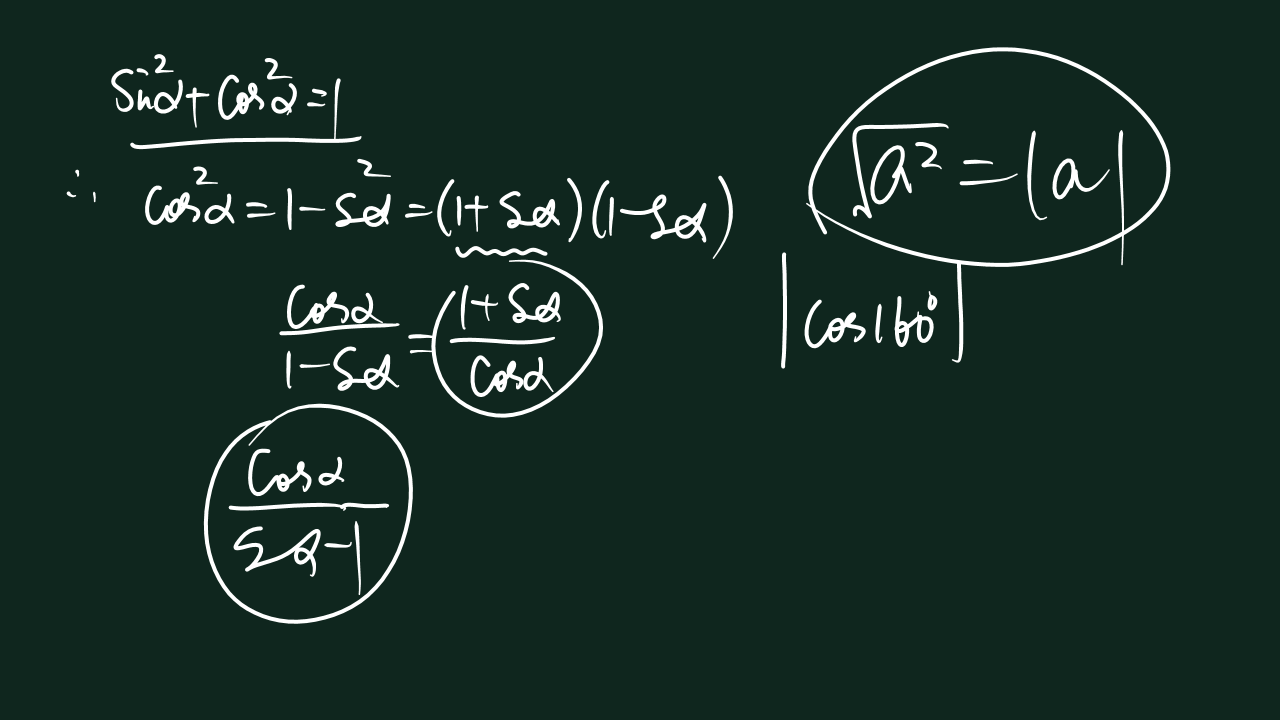 Sin²α+Cos²α=1
∴ Cos²α=1-S²α=(1+Sα)(1-Sα)
Cosα/1-Sα = 1+Sα/Cosα
Cosα/Sα-1
√a² = |a|
|Cos160°|